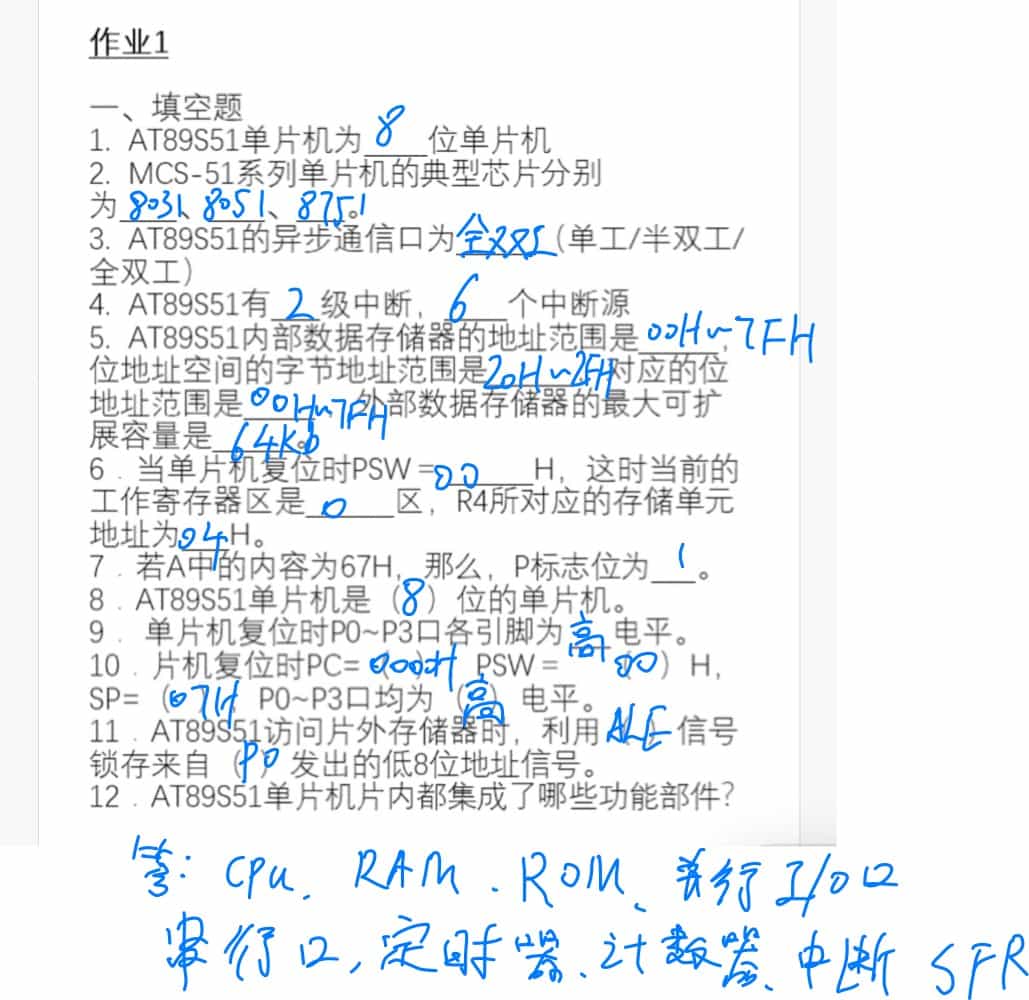 作业1
一、填空题
1. AT89S51单片机为 8 位单片机
2. MCS-51系列单片机的典型芯片分别
为 8031、8051、8751。
3. AT89S51的异步通信口为 全双工 (单工/半双工/
全双工)
4. AT89S51有 2 级中断, 6 个中断源
5. AT89S51内部数据存储器的地址范围是 00H~7FH,
位地址空间的字节地址范围是 20H~2FH 对应的位
地址范围是 00H~7FH 外部数据存储器的最大可扩
展容量是 64Kb。
6．当单片机复位时PSW = 00 H，这时当前的
工作寄存器区是 0 区，R4所对应的存储单元
地址为 04 H。
7．若A中的内容为67H，那么，P标志位为 1 。
8．AT89S51单片机是（8）位的单片机。
9． 单片机复位时P0~P3口各引脚为 高 电平。
10．片机复位时PC= 0000H PSW =（00）H，
SP=（07H P0~P3口均为（高）电平。
11．AT89S51访问片外存储器时，利用 ALE 信号
锁存来自（P0）发出的低8位地址信号。
12．AT89S51单片机片内都集成了哪些功能部件?
答: CPU、RAM、ROM、并行I/O口
串行口,定时器、计数器、中断 SFR